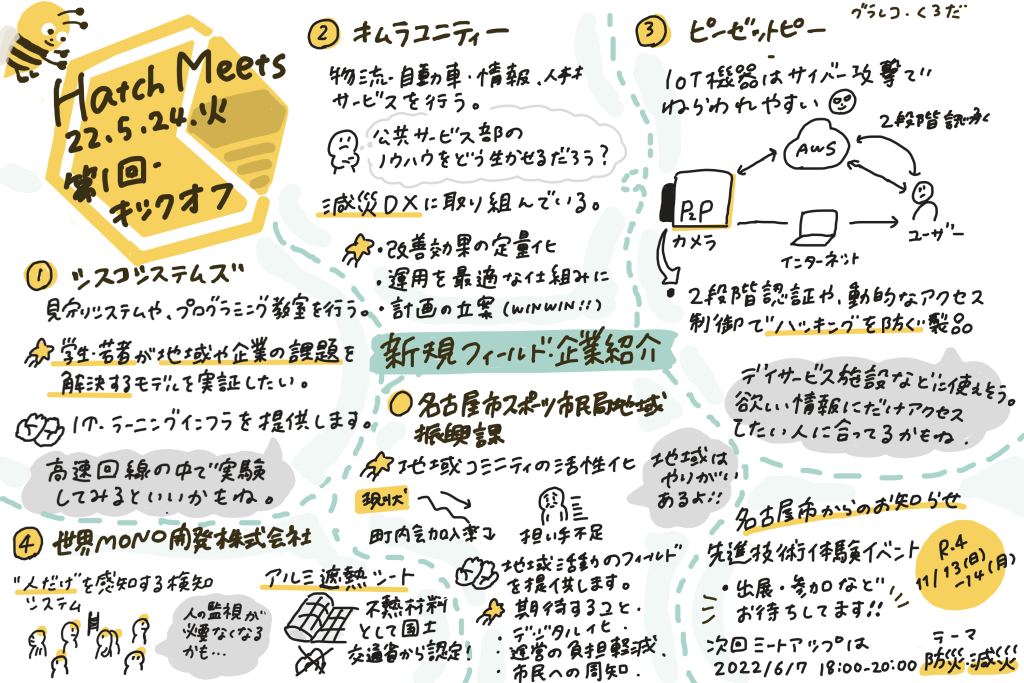 Hatch Meets
22.5.24.火
第1回・
キックオフ
① シスコシステムズ
見守りシステムや、プログラミング教室を行う。
学生・若者が地域や企業の課題を
解決するモデルを実証したい。
ラーニングインフラを提供します。
高速回線の中で実験
してみるといいかもね。
② キムラユニティー
物流・自動車・情報、人材
サービスを行う。
公共サービス部の
ノウハウをどう生かせるだろう?
減災DXに取り組んでいる。
・改善効果の定量化
・運用を最適な仕組みに
・計画の立案(WINWIN!!)
③ ピーゼットピー
グラレコ・くろだ
IoT機器はサイバー攻撃で
ねらわれやすい
2段階認承
AWS
PzP
カメラ
インターネット
ユーザー
・2段階認証や、動的なアクセス
制御でハッキングを防ぐ製品
デイサービス施設などに使えそう。
欲しい情報にだけアクセス
したい人に合ってるかもね.
新規フィールド・企業紹介
名古屋市スポーツ市民局地域
振興課
地域コミニティの活性化
現状
町内会加入率↓
担い手不足
地域は
やりがい
あるよ!!
地域活動のフィールド
を提供します。
期待すること・
・デジタル化・
・運営の負担軽減.
・市民への周知.
④ 世界MONO開発株式会社
"人だけ"を感知する検知
システム
人の監視が
必要なくなる
かも…
アルミ遮熱シート
不熱材料
として国土
交通省から認定!
名古屋市からのお知らせ
先進技術体験イベント
・出展・参加など
お待ちしてます!!
R.4
11/13(日)
-14(月)
次回ミートアップは
2022/6/17 18:00-20:00
テーマ
防災・減災